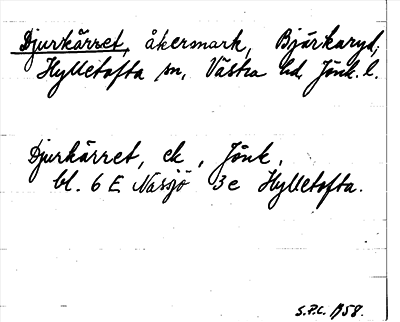 Djurkärret, åkermark, Bjärkaryd,
Hylletofta sn, Västra hd, Jönk. l.
Djurkärret, ek, Jönk.
bl. 6 E Nässjö 3e Hylletofta.
S.P.L. 1958.